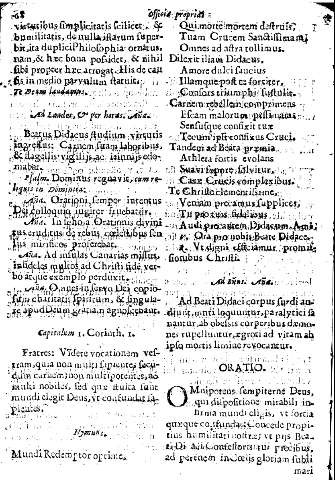 68 Officia propria
virtutibus simplicitatis scilicet, &
humilitatis, de nulla istarum super-
bit, ita duplici Philosophia ornatus,
nam, & hæc bona possidet, & nihil
sibi propter hæc arrogat. His de cau-
sis in medio parvulum statuit.
Te Deum laudamus.
Ad Laudes, & per horas. Aña.
Beatus Didacus studium virtutis
ingressus: Carnem suam laboribus,
& flagellis vigilijs, ac ieiunijs edo-
mabat.
Psalm. Dominus regnavit, cum re-
liquis in Dominica.
Aña. Orationi semper intentus
Dei colloquio iugiter fruebatur.
Aña. In schola Orationis divini-
tus eruditus, de rebus cœlestibus ser-
mones mirificos proferebat.
Aña. Ad insulas Canarias missus,
infideles multos ad Christi fidé ver-
bo atque exemplo perduxit.
Aña. Omnes in servo Dei copio-
sum charitatis spiritum, & singula-
re apud Deum gratiam agnoscebant.
Capitulum 1. Corinth. 1.
Fratres: Videte vocationem ves-
tram, quia non multi sapientes secu-
dum carnem, non multi potentes, no
multi nobiles, sed quæ stulta sunt
mundi elegit Deus, ut confundat sa-
pientes.
Hymnus.
Mundi Redemptor optime,
Qui morte mortem destruis,
Tuam Crucem Sanctissimam,
Omnes ad astra tollimus.
Dilexit illam Didacus,
Amore dulci saucius
Illamque post te forciter,
Consors triumphi, sustulit.
Carnem rebellem comprimens
Escam malorum pessimam,
Sensusque confixit tuæ
Tecum ipse confixus Cruci.
Tandem ad beata præmia
Athleta fortis evolans
Suavi sopore, salvitur,
Castæ Crucis complexibus.
Te Christe clementissime,
Veniam precamur supplices,
Tu pro tuis fidelibus
Audi precantem Didacum. Amē.
℣. Ora pro nobis Beate Didace.
℟. Ut digni efficiamur promis-
sionibus Christi.
Ad Bñus. Aña.
Ad Beati Didaci corpus surdi au-
diunt, muti loquuntur, paralytici sa
nantur, ab obesis corporibus dæmo-
nes repelluntur, ægroti ad vitam ab
ipso mortis limine revocantur.
ORATIO.
OMnipotens sempiterne Deus,
qui dispositione mirabili in-
firma mundi eligis, ut fortia
quæque confundas: Concede propi-
tius humilitati nostræ, ut pijs Bea-
ti Didaci Confessoris tui precibus,
ad perennem in Cœlis gloriam subli
mari